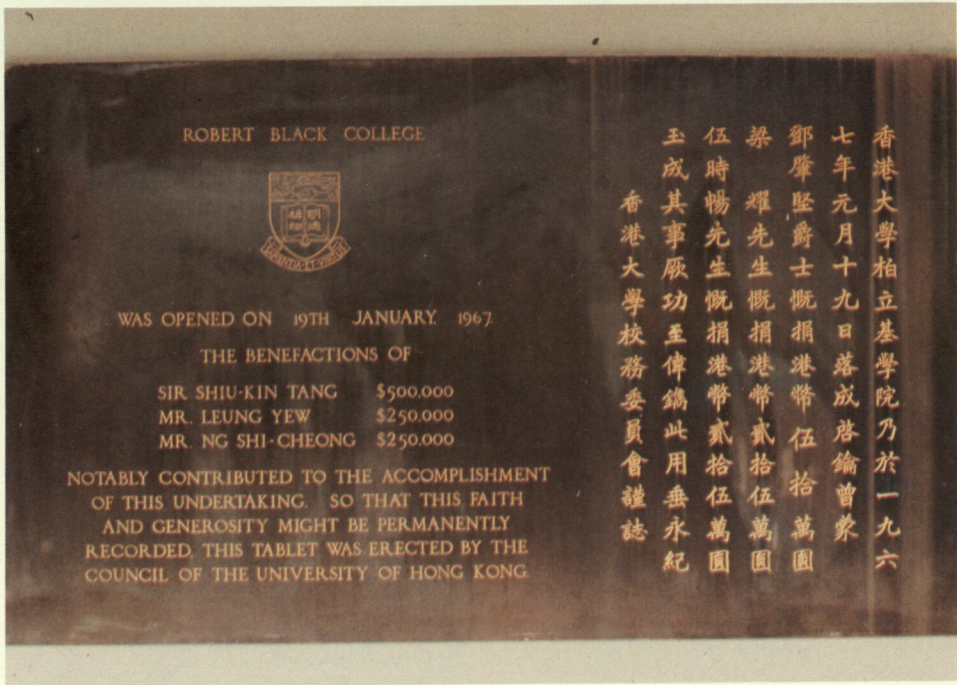 ROBERT BLACK COLLEGE
SAPIENTIA·ET·VIRTUS
WAS OPENED ON 19TH JANUARY. 1967.
THE BENEFACTIONS OF
SIR SHIU-KIN TANG $500,000
MR. LEUNG YEW $250,000
MR. NG SHI-CHEONG $250,000
NOTABLY CONTRIBUTED TO THE ACCOMPLISHMENT
OF THIS UNDERTAKING. SO THAT THIS FAITH
AND GENEROSITY MIGHT BE PERMANENTLY
RECORDED, THIS TABLET WAS ERECTED BY THE
COUNCIL OF THE UNIVERSITY OF HONG KONG.
香港大學柏立基學院乃於一九六
七年元月十九日落成啓鑰曾蒙
鄧肇堅爵士慨捐港幣伍拾萬圓
梁耀先生慨捐港幣貳拾伍萬圓
伍時暢先生慨捐港幣貳拾伍萬圓
玉成其事厥功至偉鐫此用垂永紀
香港大學校務委員會謹誌